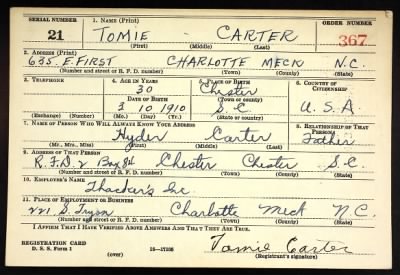 SERIAL NUMBER 1. NAME (Print) ORDER NUMBER
21 TOMIE - CARTER 367
(First) (Middle) (Last)
2. ADDRESS (Print)
635. E. FIRST CHARLOTTE MECK N.C.
(Number and street or R. F. D. number) (Town) (County) (State)
3. TELEPHONE 4. AGE IN YEARS 5. PLACE OF BIRTH 6. COUNTRY OF CITIZENSHIP
30 Chester
DATE OF BIRTH (Town or county)
3 10 1910 S.C U.S.A
(Exchange) (Number) (Mo.) (Day) (Yr.) (State or country)
7. NAME OF PERSON WHO WILL ALWAYS KNOW YOUR ADDRESS 8. RELATIONSHIP OF THAT PERSON
Hyder Carter Father
(Mr., Mrs., Miss) (First) (Middle) (Last)
9. ADDRESS OF THAT PERSON
R.F.D. 2 Box 84 Chester Chester S.C.
(Number and street or R. F. D. number) (Town) (County) (State)
10. EMPLOYER'S NAME
Thacker's Inc.
11. PLACE OF EMPLOYMENT OR BUSINESS
221 S. Tryon Charlotte Meck N.C.
(Number and street or R. F. D. number) (Town) (County) (State)
I AFFIRM THAT I HAVE VERIFIED ABOVE ANSWERS AND THAT THEY ARE TRUE.
REGISTRATION CARD
D. S. S. Form 1 (over) 16-17105 Tomie Carter
(Registrant's signature)